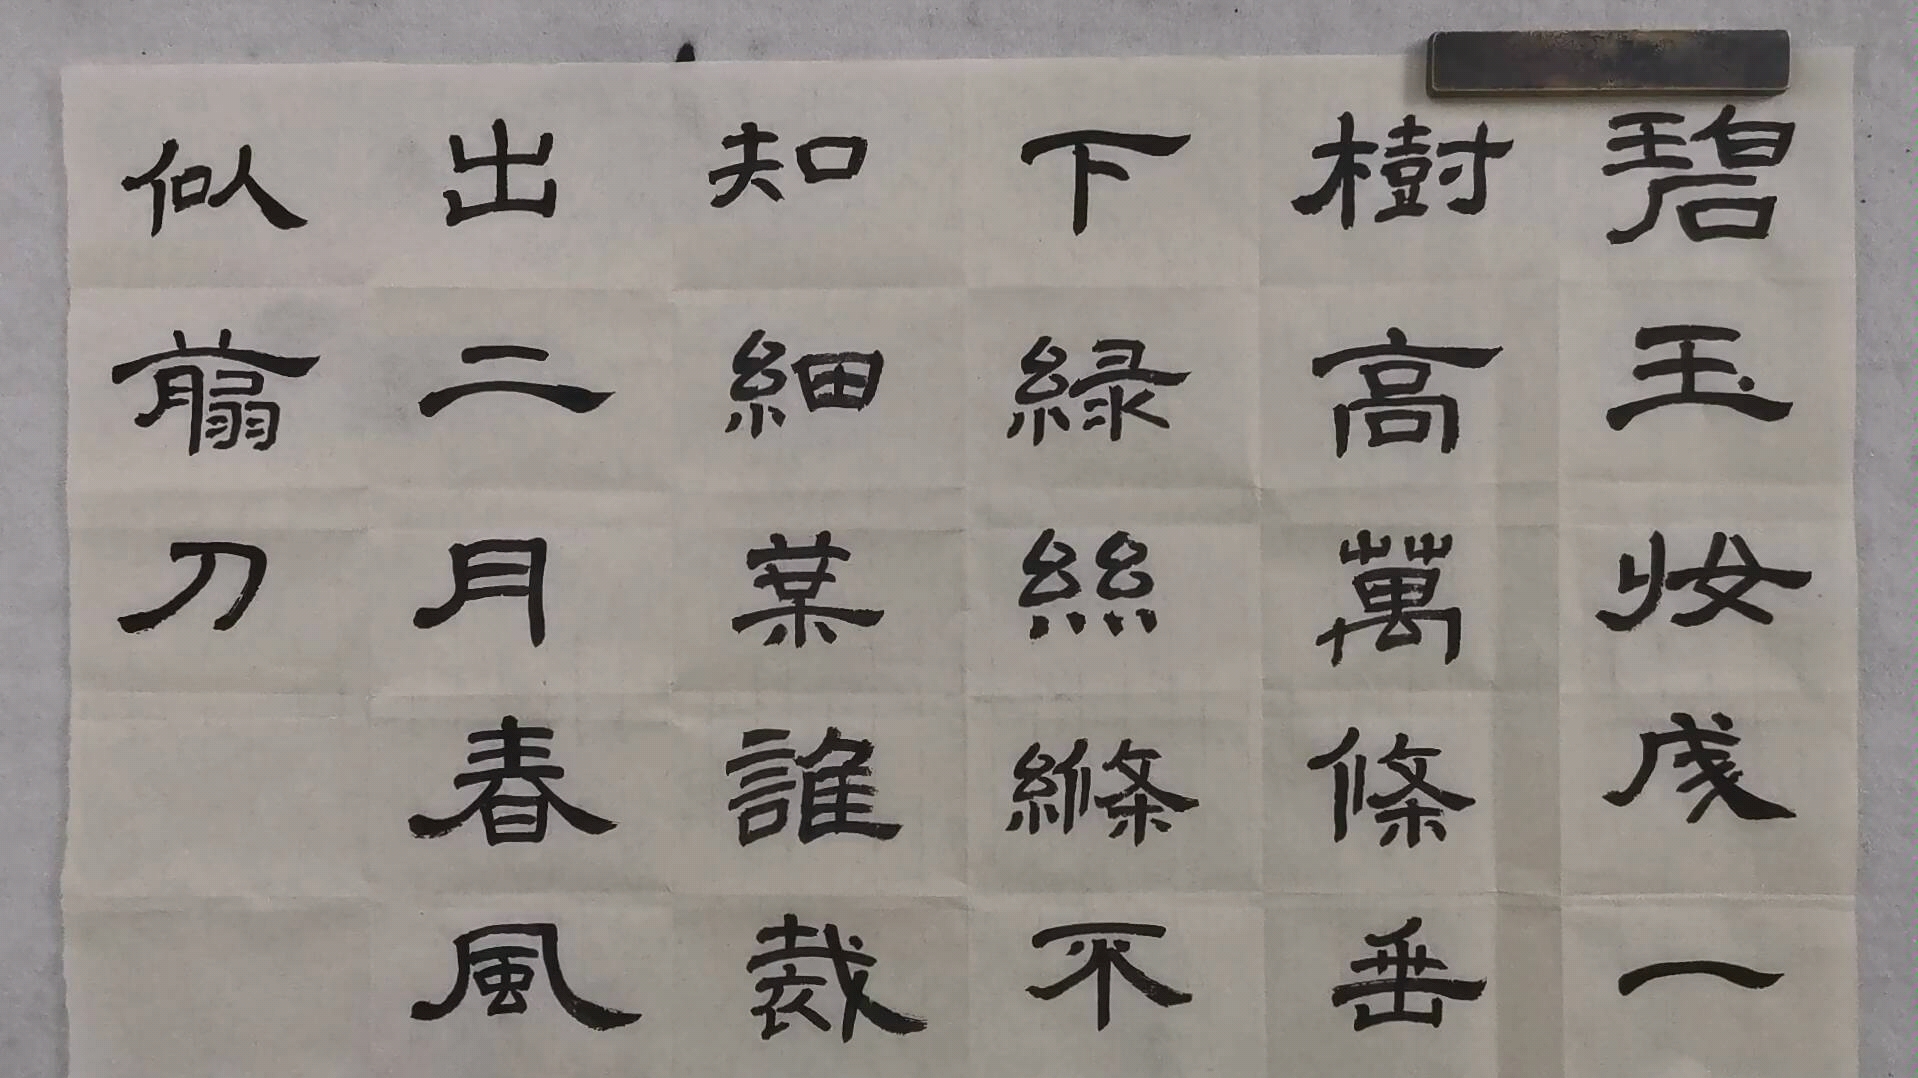 碧玉妝成一
樹高萬條垂
下綠絲絛不
知細葉誰裁
出二月春風
似翦刀